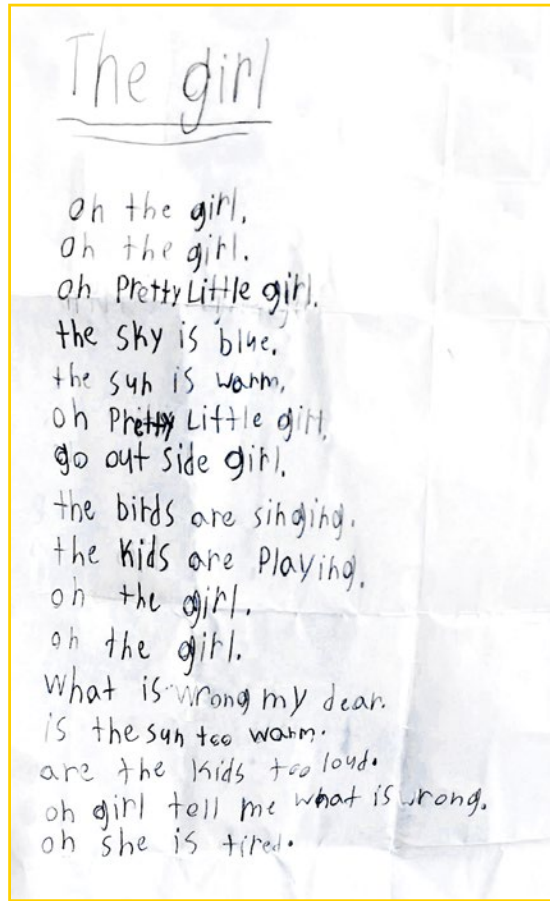 The girl
oh the girl.
oh the girl.
oh Pretty Little girl.
the sky is blue.
the sun is warm.
oh Pretty Little girl.
go out side girl.
the birds are singing.
the Kids are Playing.
oh the girl.
oh the girl.
What is wrong my dear.
is the sun too warm.
are the Kids too loud.
oh girl tell me what is wrong.
oh she is tired.